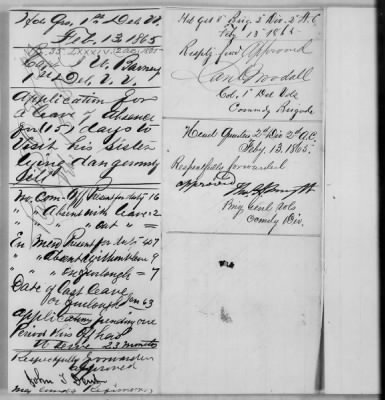 Hd Qrs 1st Del. V.
Feb. 13. 1865
Capt. J. W. Barney
1st Del. V. V.
Application for
a leave of absence
for (15) days to
visit his sister
lying dangerously
ill.
No. Com. Off Present for duty 16
" " Absent with leave 2
" " " out " =
En. Men Present for duty 407
" " Absent without leave 9
" " on furlough = 7
Date of last leave
or furlough Jan 63
Application pending one
Period this Off has
23 months
Respectfully forwarded
approved
John T. Dent
Maj Comdg Regiment
Hd Qrs 3" Brig 2" Div 2" A. C.
Feby 13" 1865
Respty fwd Approved
Danl Woodall
Col. 1st Del Vols
Commdg Brigade
Head Quarters 2d Div 2d A.C.
Feby 13. 1865.
Respectfully forwarded
approved
Brig Genl Vols
Comdg Div.